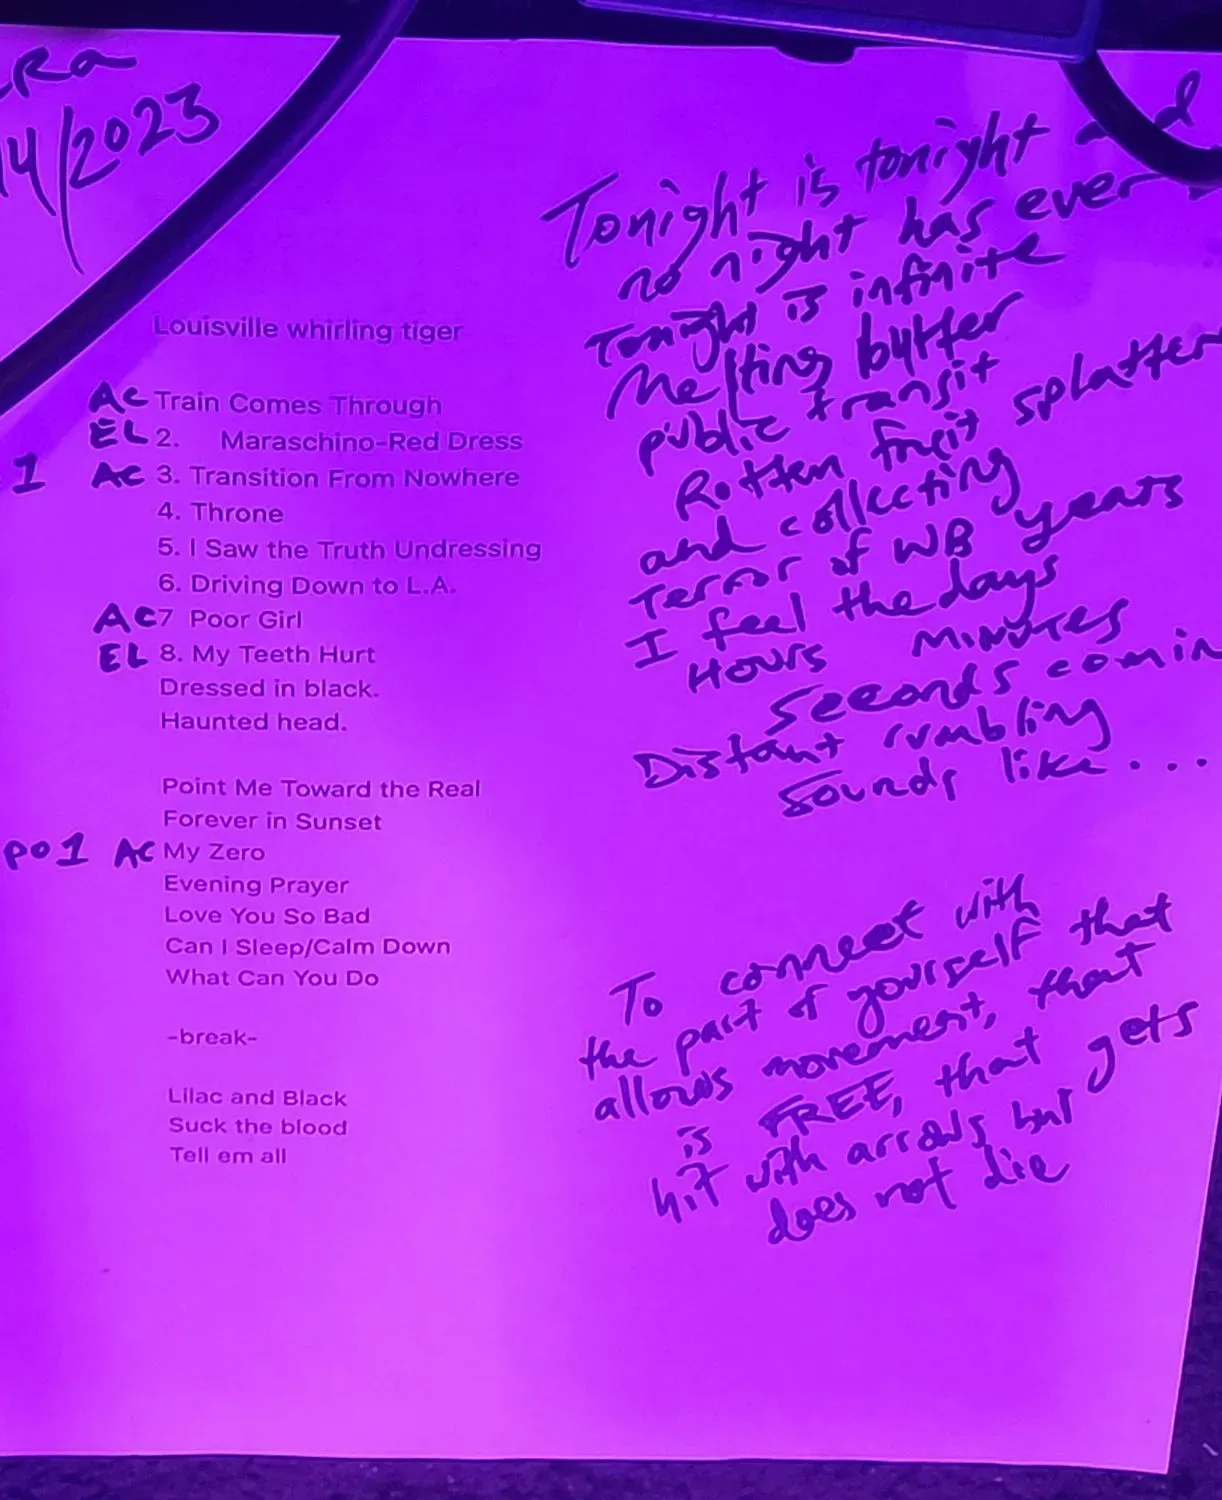 RA
14/2023
Louisville whirling tiger
AC Train Comes Through
EL 2. Maraschino-Red Dress
1 AC 3. Transition From Nowhere
4. Throne
5. I Saw the Truth Undressing
6. Driving Down to L.A.
AC 7 Poor Girl
EL 8. My Teeth Hurt
Dressed in black.
Haunted head.
Point Me Toward the Real
Forever in Sunset
po1 AC My Zero
Evening Prayer
Love You So Bad
Can I Sleep/Calm Down
What Can You Do
-break-
Lilac and Black
Suck the blood
Tell em all
Tonight is tonight and
no night has ever
Tonight is infinite
Melting butter
public transit
Rotten fruit splatter
and collecting
Terror of WB years
I feel the days
Hours MINUTES
Seconds comin
Distant rumbling
Sounds like...
To connect with
the part of yourself that
allows movement, that
is FREE, that gets
hit with arrows but
does not die